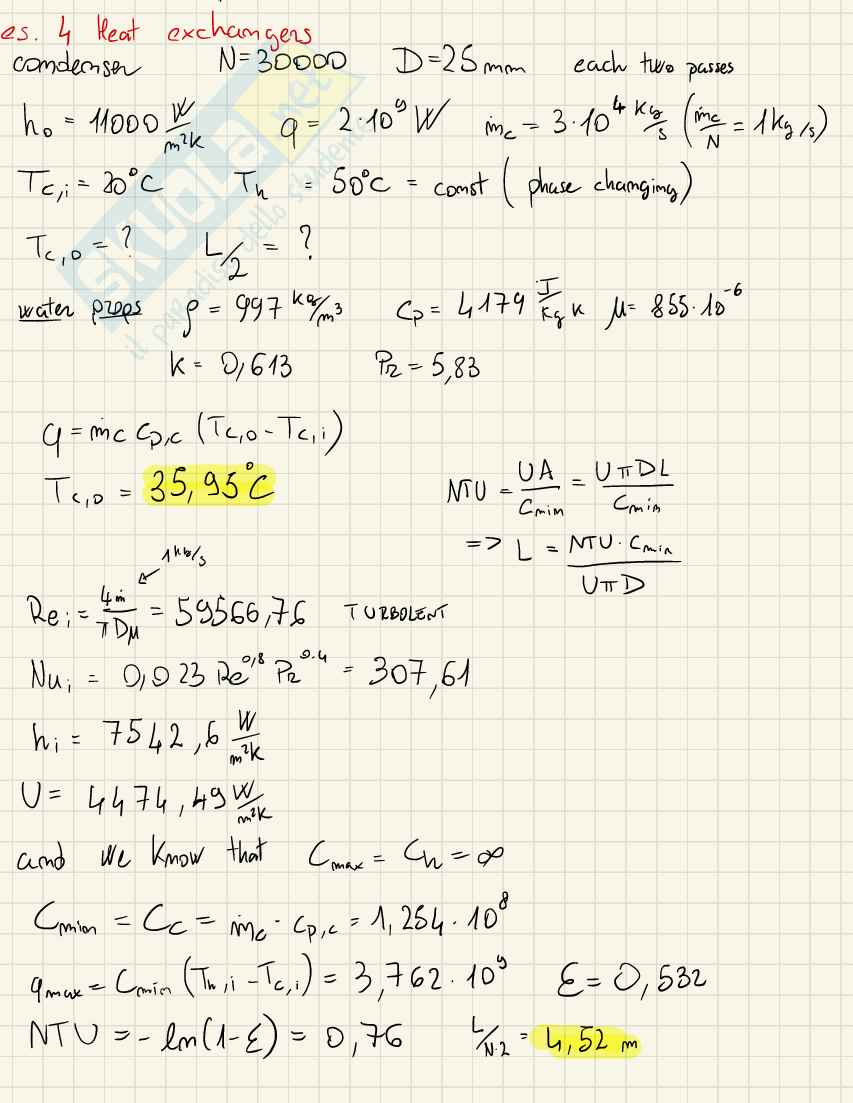 es. 4 Heat exchangers
condenser N=30000 D=25mm each two passes
h₀ = 11000 W/m²K q = 2·10⁹ W ṁc = 3·10⁴ kg/s (ṁc/N = 1kg/s)
Tc,i = 20°C Th = 50°C = const (phase changing)
Tc,o = ? L/2 = ?
water props ρ = 997 kg/m³ Cp = 4179 J/kg K μ = 855·10⁻⁶
k = 0,613 Pr = 5,83
q = ṁc Cp,c (Tc,o - Tc,i)
Tc,o = 35,95°C
NTU = UA/Cmin = UπDL/Cmin
=> L = NTU·Cmin/UπD
1kg/s
Rei = 4ṁ/πDμ = 59566,76 TURBOLENT
Nui = 0,023 Re^0,8 Pr^0.4 = 307,61
hi = 7542,6 W/m²K
U = 4474,49 W/m²K
and we know that Cmax = Ch = ∞
Cmin = Cc = ṁc · Cp,c = 1,254·10⁸
qmax = Cmin (Th,i - Tc,i) = 3,762·10⁹ ε = 0,532
NTU = -ln(1-ε) = 0,76 L/N·2 = 4,52 m
SKUOLA.net
il paradiso dello studente